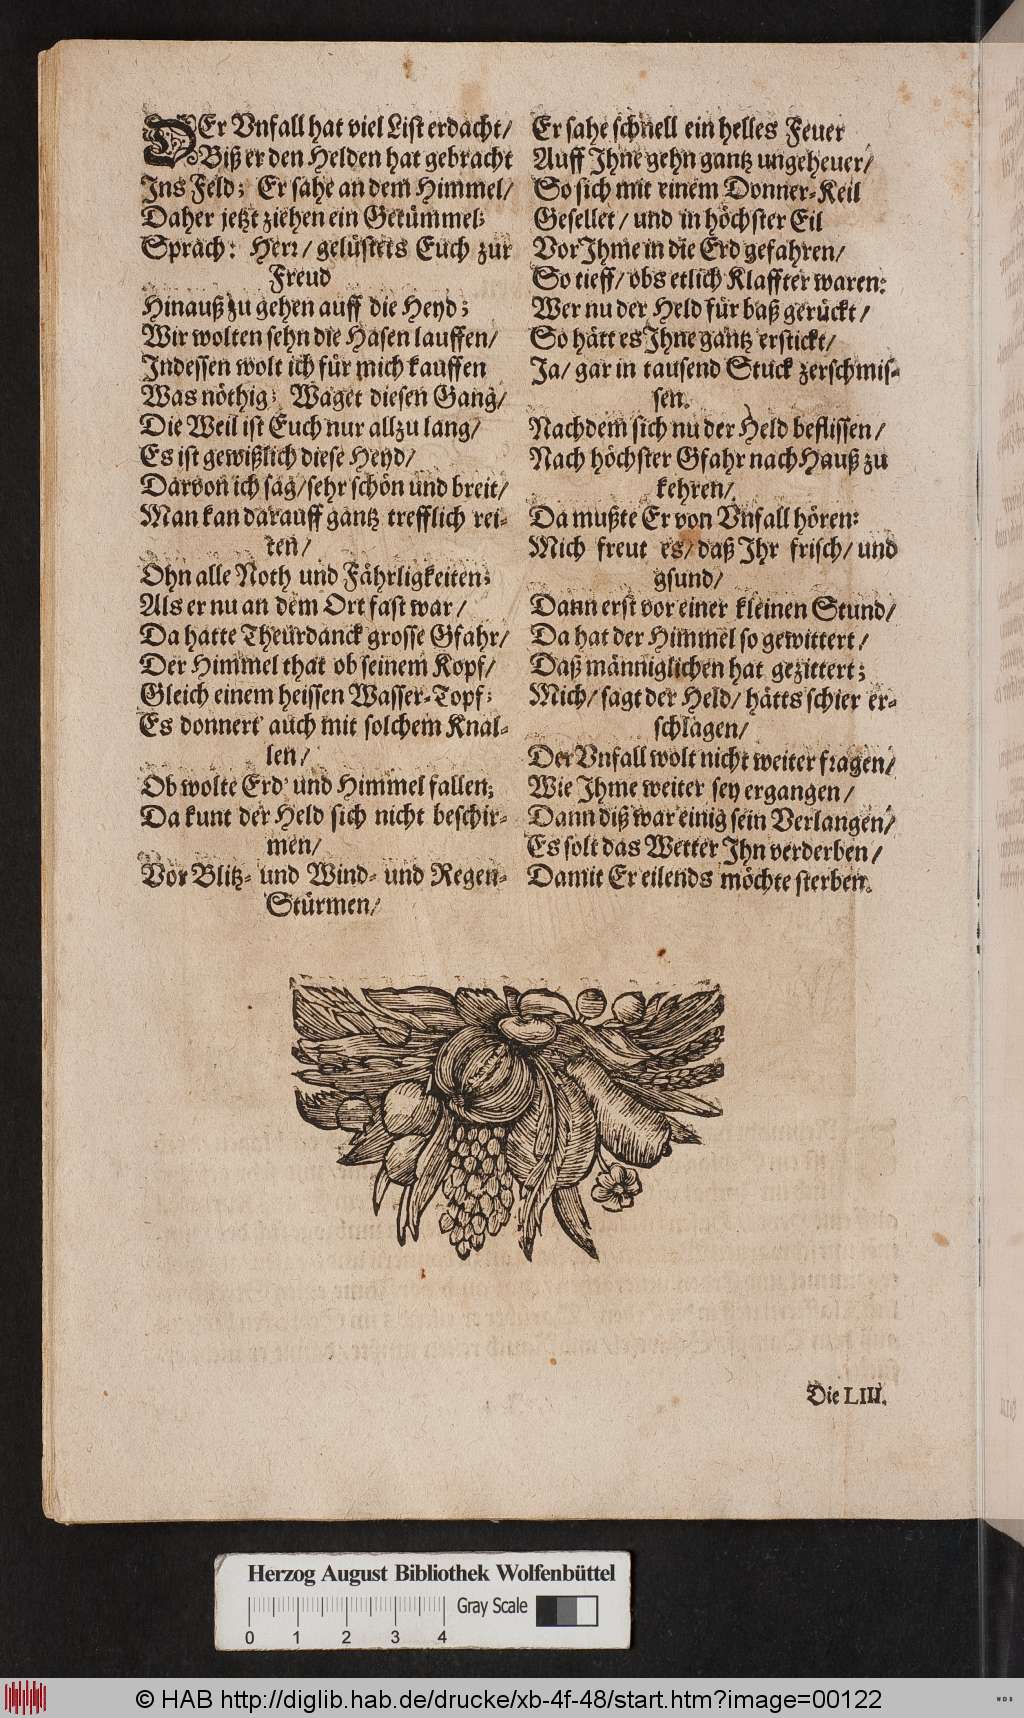 DEr Vnfall hat viel List erdacht/
Biß er den Helden hat gebracht
Ins Feld; Er sahe an dem Himmel/
Daher jetzt ziehen ein Getümmel;
Sprach: Herr/ gelüstets Euch zur
Freud
Hinauß zu gehen auff die Heyd;
Wir wolten sehn die Hasen lauffen/
Indessen wolt ich für mich kauffen
Was nöthig; Waget diesen Gang/
Die Weil ist Euch nur allzu lang/
Es ist gewißlich diese Heyd/
Darvon ich sag/ sehr schön und breit/
Man kan darauff gantz trefflich rei-
ten/
Ohn alle Noth und Fährligkeiten;
Als er nu an dem Ort fast war/
Da hatte Theurdanck grosse Gfahr/
Der Himmel that ob seinem Kopf/
Gleich einem heissen Wasser-Topf;
Es donnert' auch mit solchem Knal-
len/
Ob wolte Erd' und Himmel fallen;
Da kunt der Held sich nicht beschir-
men/
Vor Blitz- und Wind- und Regen-
Stürmen/
Er sahe schnell ein helles Feuer
Auff Ihne gehn gantz ungeheuer/
So sich mit einem Donner-Keil
Gesellet/ und in höchster Eil
Vor Ihme in die Erd gefahren/
So tieff/ obs etlich Klaffter waren:
Wer nu der Held für baß gerückt/
So hätt es Ihne gantz erstickt/
Ja/ gar in tausend Stuck zerschmis-
sen.
Nachdem sich nu der Held beflissen/
Nach höchster Gfahr nach Hauß zu
kehren/
Da mußte Er von Vnfall hören:
Mich freut es/ daß Ihr frisch/ und
gsund/
Dann erst vor einer kleinen Stund/
Da hat der Himmel so gewittert/
Daß männiglichen hat gezittert;
Mich/ sagt der Held/ hätts schier er-
schlagen/
Der Vnfall wolt nicht weiter fragen/
Wie Ihme weiter sey ergangen/
Dann diß war einig sein Verlangen/
Es solt das Wetter Ihn verderben/
Damit Er eilends möchte sterben.
Die LIII.
Herzog August Bibliothek Wolfenbüttel
Gray Scale
0 1 2 3 4
© HAB http://diglib.hab.de/drucke/xb-4f-48/start.htm?image=00122